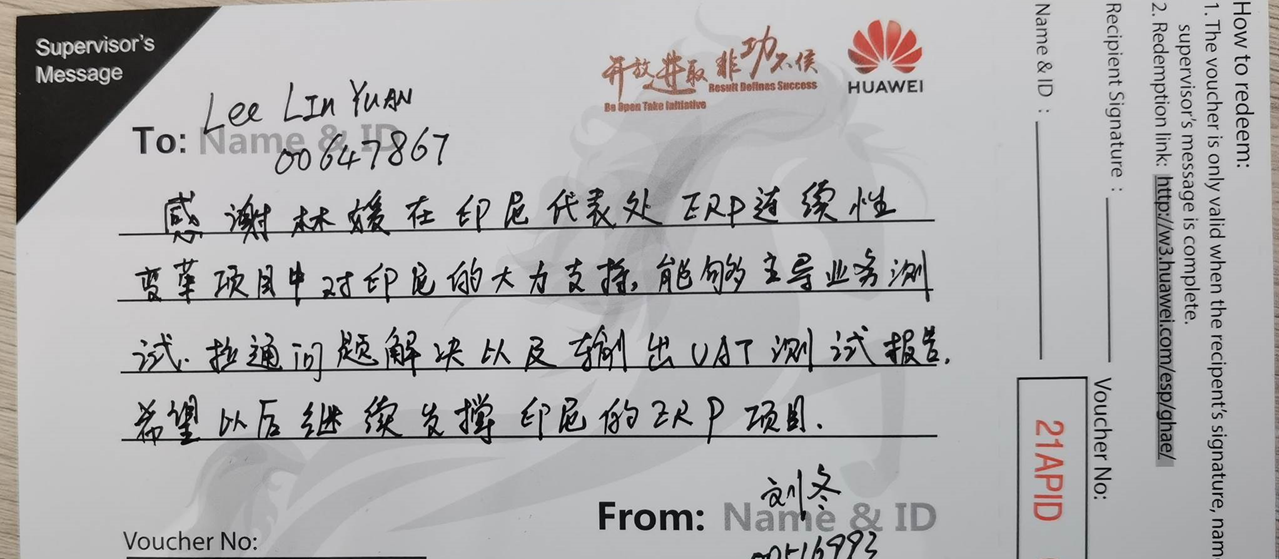 Supervisor's
Message
开放进取 非功不侯
Be Open Take Initiative
Result Defines Success
HUAWEI
To: Name & ID
Lee LIN YUAN
00647867
感谢林媛在印尼代表处ERP连续性
变革项目中对印尼的大力支持,能够主导业务测
试.拉通问题解决以及输出UAT测试报告.
希望以后继续支撑印尼的ERP项目.
From: Name & ID
刘冬
00516993
Voucher No:
How to redeem:
1. The voucher is only valid when the recipient's signature, nam
supervisor's message is complete.
2. Redemption link: http://w3.huawei.com/esp/ghae/
Recipient Signature :
Name & ID :
Voucher No:
21APID